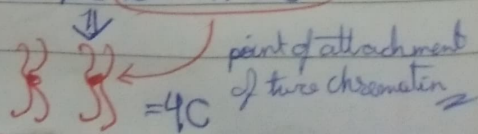 point of attachment
of two chromatin
=4C